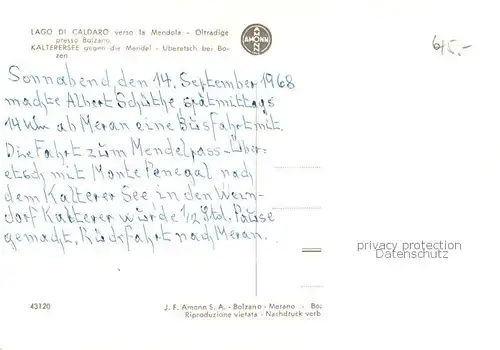 LAGO DI CALDARO verso la Mendola - Oltradige
presso Bolzano
KALTERERSEE gegen die Mendel - Uberetsch bei Bo-
zen
AMONN
AMONN
6/5.-
Sonnabend den 14. September 1968
machte Albert Schüthe, spätmittags
14 Uhr ab Meran eine Busfahrt mit.
Die Fahrt zum Mendelpass-Über=
etsch mit Monte Penegal nach
dem Kalterer See in den Wein-
dorf Kalterer wurde 1/2 Std. Pause
gemacht. Rückfahrt nach Meran.
privacy protection
Datenschutz
43120
J. F. Amonn S. A. - Bolzano - Merano - Boz
Riproduzione vietata - Nachdruck verb